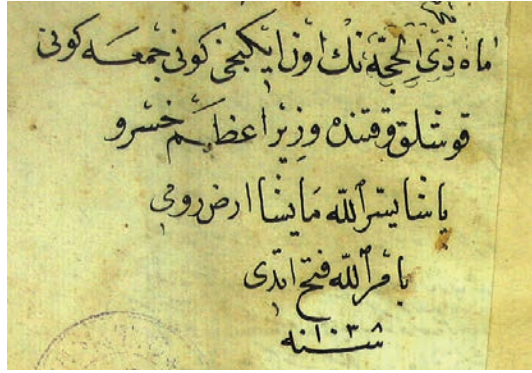 ماه ذی الحجة نك اون ایكیجی كونی جمعه كونی
قوشلق وقتنده وزیر اعظم خسرو
پاشا یسّر اللّه مایشا ارض رومی
بامر اللّه فتح ایدی
سنه ۱۰۳